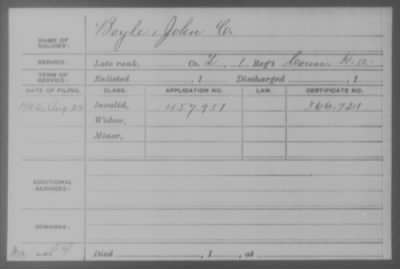 NAME OF SOLDIER: Boyle, John C.
SERVICE: Late rank, Co. L, 1 Reg't Conn. H.A.
TERM OF SERVICE: Enlisted , 1 Discharged , 1
DATE OF FILING. CLASS. APPLICATION NO. LAW. CERTIFICATE NO.
Aug 24 Invalid, 457.951 366.721
Widow,
Minor,
ADDITIONAL SERVICES:
REMARKS:
Died , 1 , at